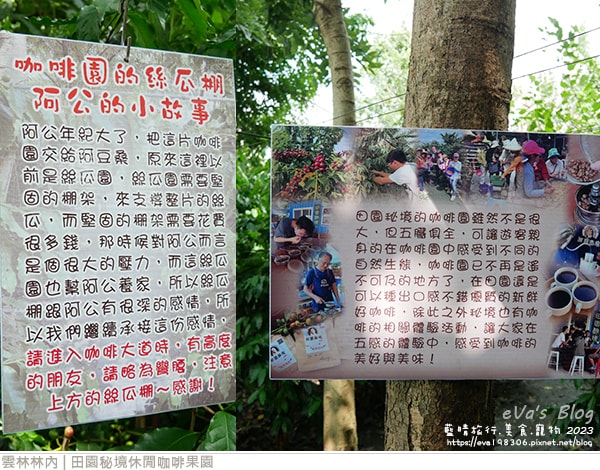 咖啡園的絲瓜棚
阿公的小故事
阿公年紀大了，把這片咖啡
園交給阿豆桑，原來這裡以
前是絲瓜園，絲瓜園需要堅
固的棚架，來支撐整片的絲
瓜，而堅固的棚架需要花費
很多錢，那時候對阿公而言
是個很大的壓力，而這絲瓜
園也幫阿公養家，所以絲瓜
棚跟阿公有很深的感情，所
以我們繼續承接這份感情，
請進入咖啡大道時，有高度
的朋友，請略為彎腰，注意
上方的絲瓜棚~感謝！
田園秘境的咖啡園雖然不是很
大，但五臟俱全，可讓遊客親
身的在咖啡園中感受到不同的
自然生態，咖啡園已不再是遙
不可及的地方了，在田園這是
可以種出口感不錯優質的新鮮
好咖啡，除此之外秘境也有咖
啡的相關體驗活動，讓大家在
五感的體驗中，感受到咖啡的
美好與美味！
eVa's Blog
藍晴旅行.美食.寵物 2023
https://eva198306.pixnet.net/blog
雲林林內 | 田園秘境休閒咖啡果園